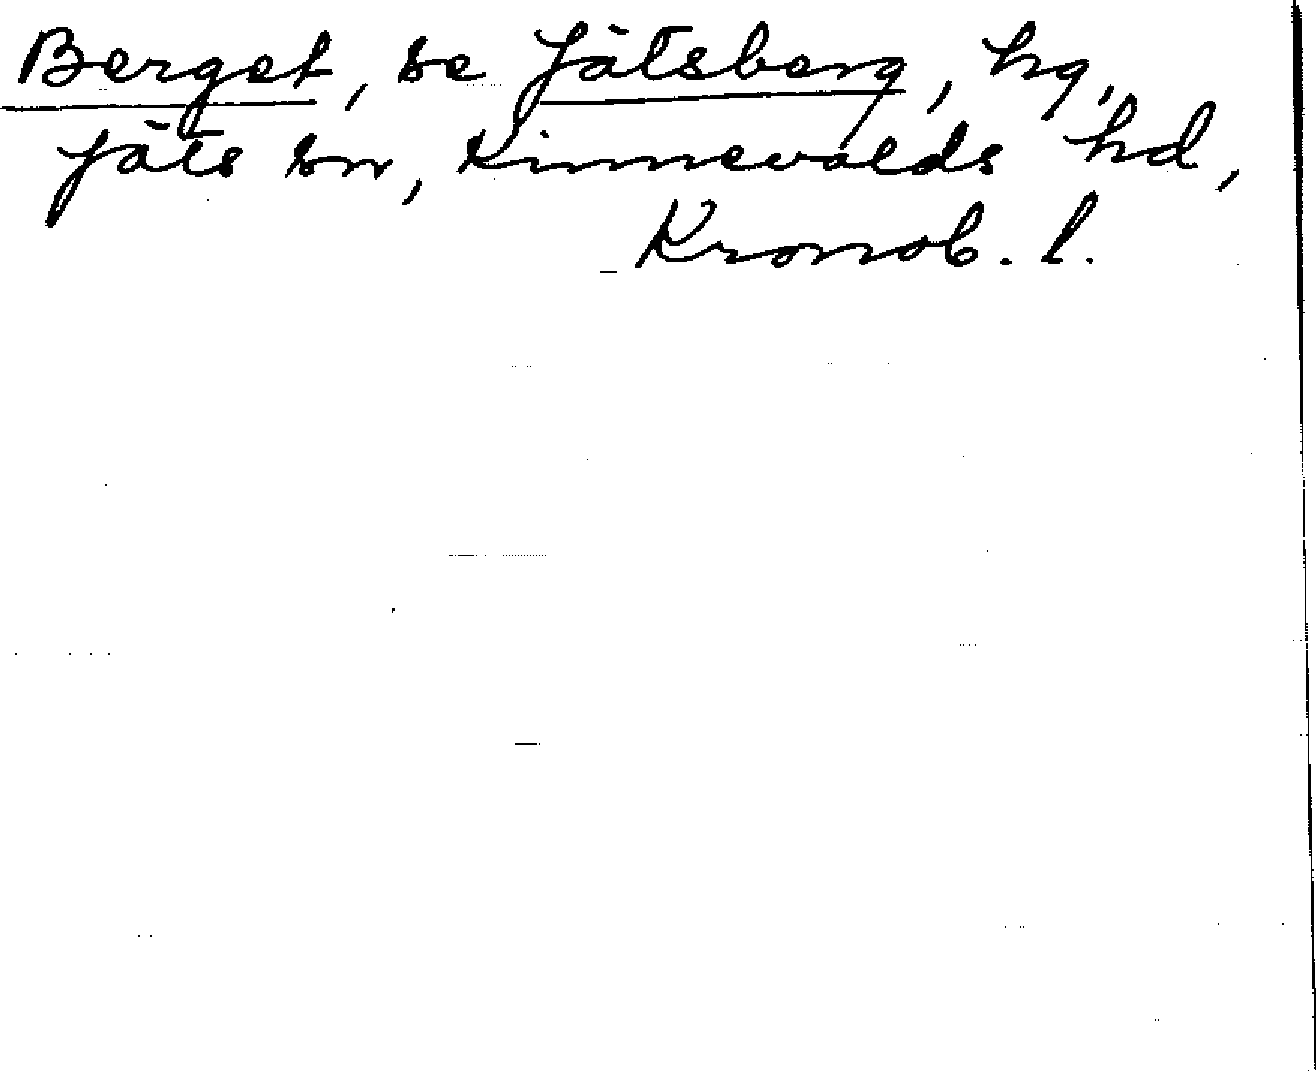 Berget, se Jätsberg, hg,
Jäts sn, Kinnevalds hd,
Kronob. l.